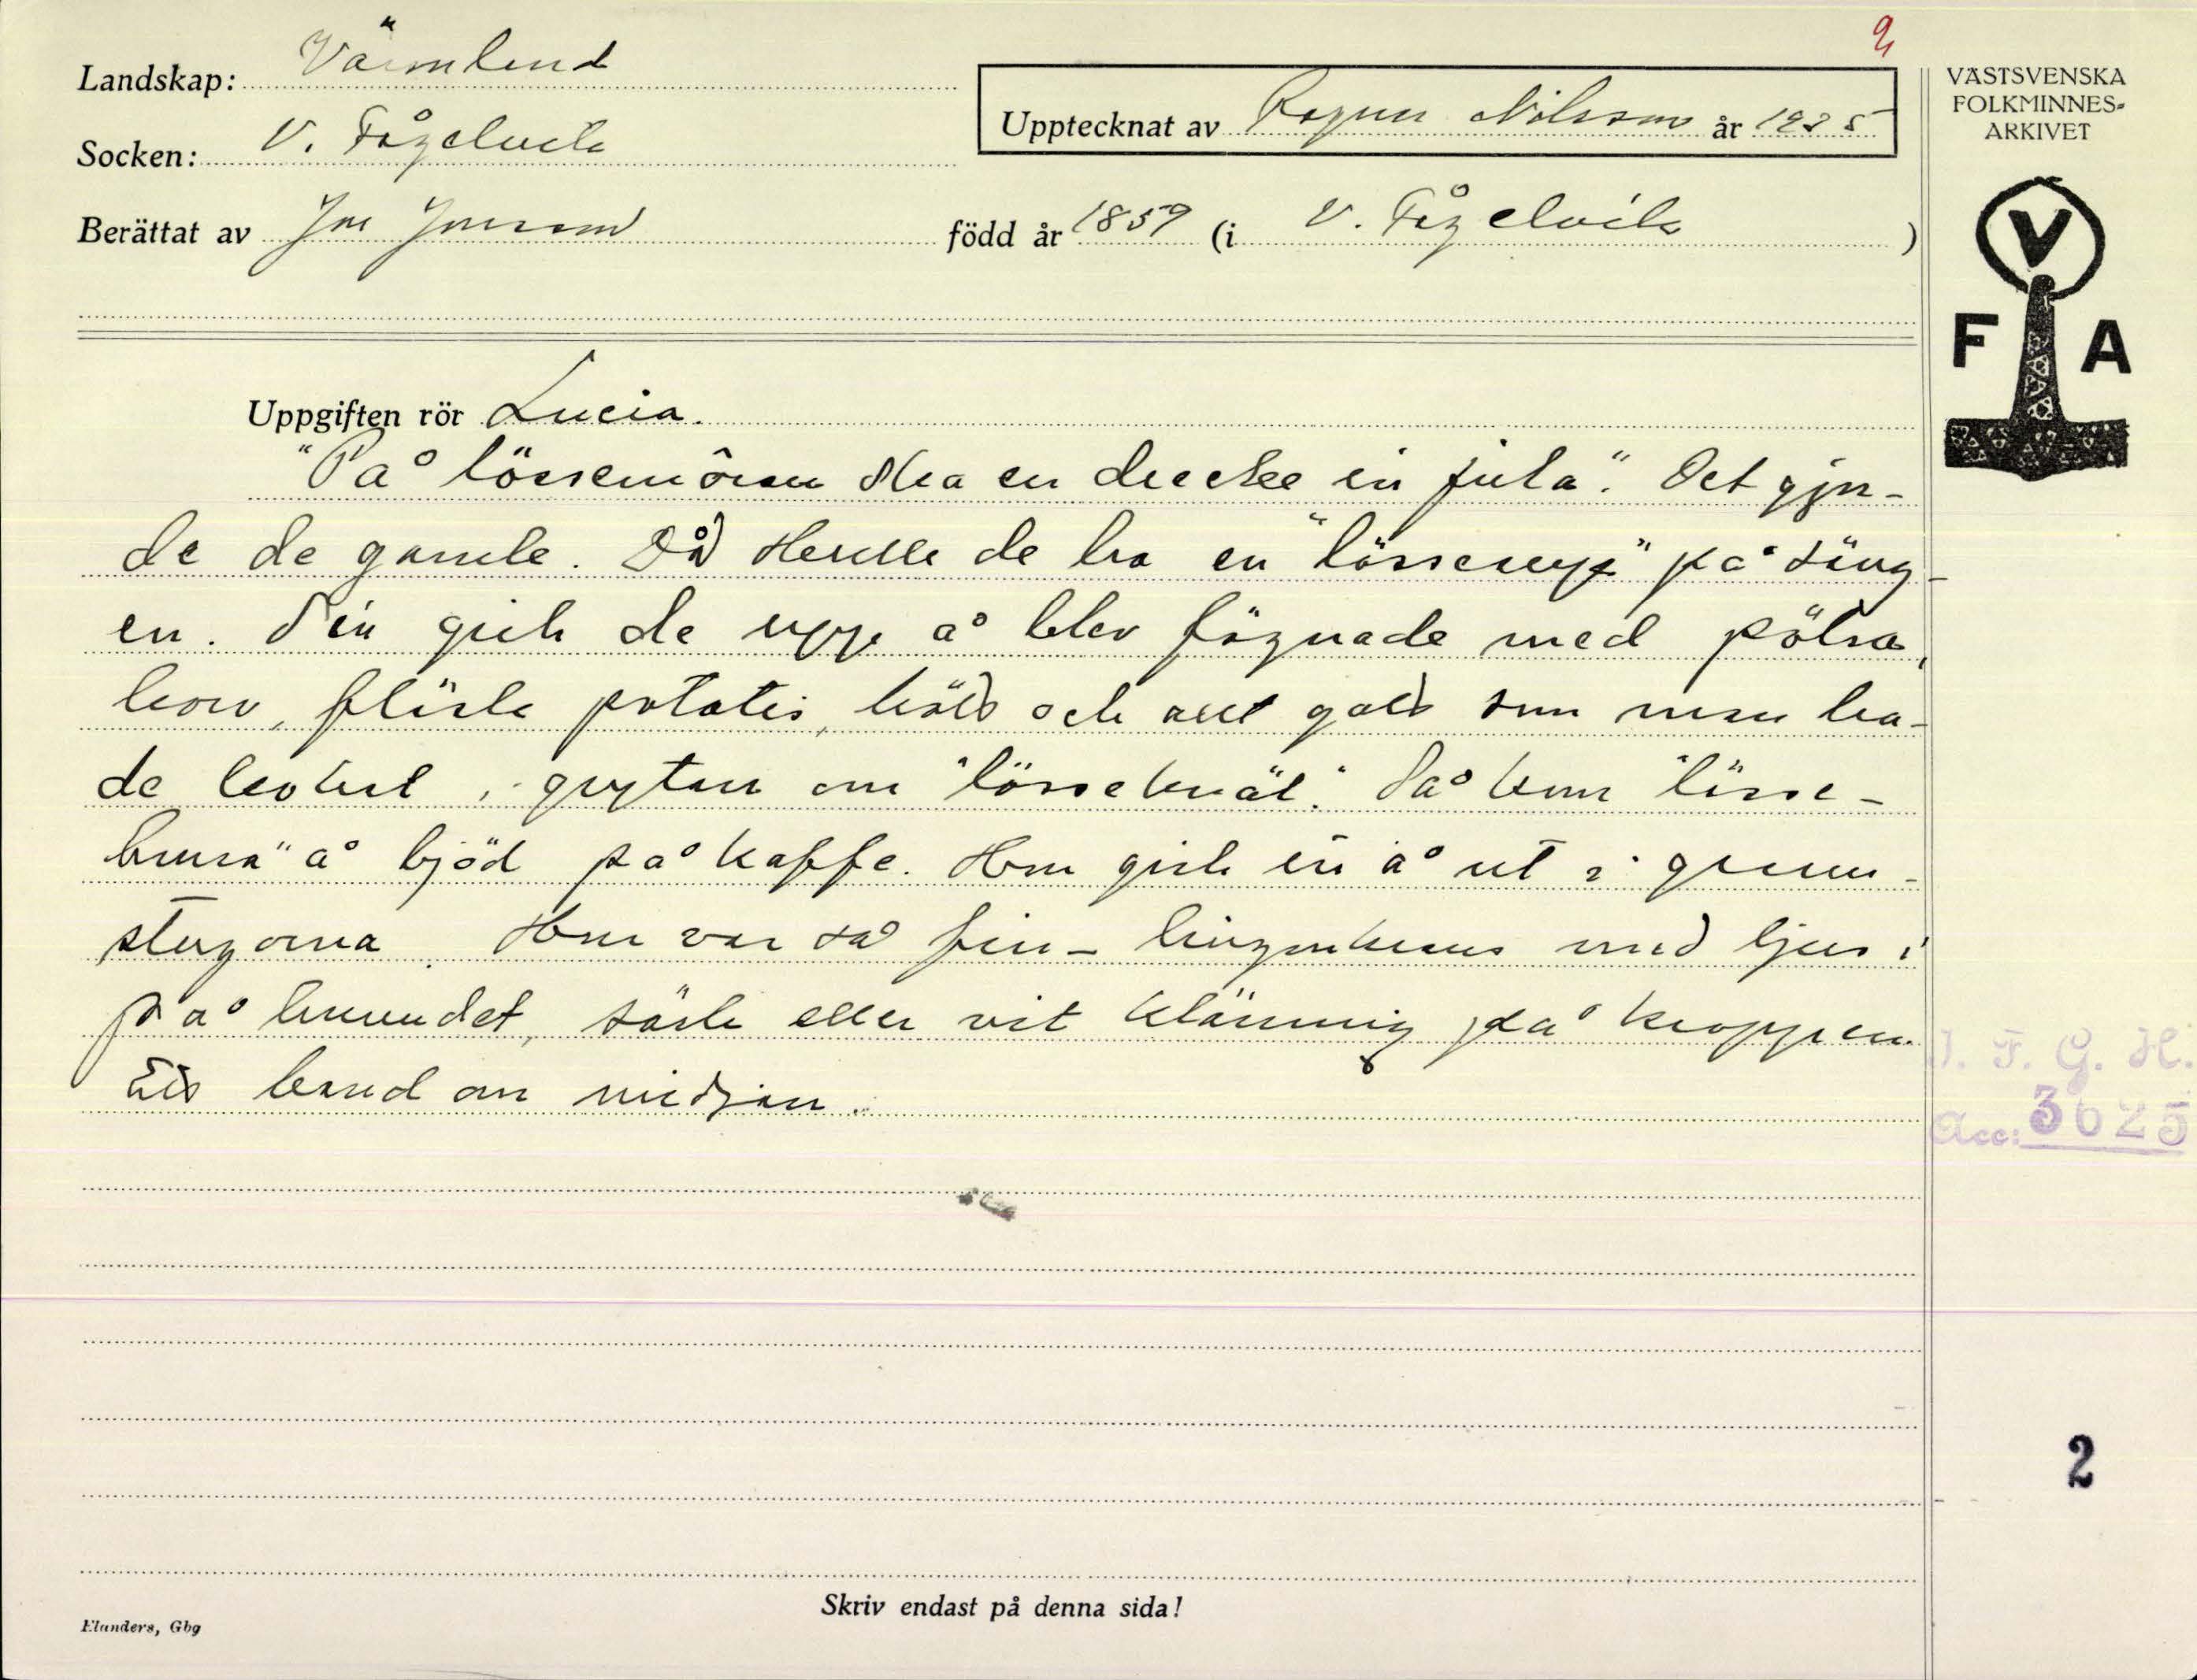 2
Landskap: Värmland
Socken: V. Fågelvik
Upptecknat av Ragnar Nilsson år 1935
VÄSTSVENSKA
FOLKMINNES-
ARKIVET
Berättat av Jon Jonsson född år 1859 (i V. Fågelvik )
V
F A
Uppgiften rör Lucia.
"På lössemôran ska en drecke in jula". Det gjor-
de de gamle. Då skulle de ha en "lössesup" på säng-
en. Sin gick de upp å blev fägnade med pölsa,
korv, fläsk potatis, kôld och allt gott som man ha-
de kokat i grytan om "lössekväl". Så kom "lösse-
brura" å bjöd på kaffe. Hon gick in å ut i grann-
stugorna. Hon var så fin - lingonkrans med ljus i
på huvudet, särk eller vit klänning på kroppen.
Ett band om midjan.
J. F. G. H.
Acc: 3625
2
Skriv endast på denna sida!
Elanders, Gbg